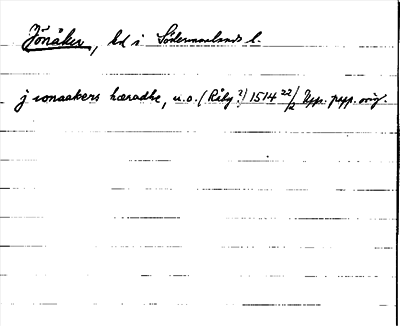 Jönåker, hd i Södermanlands l.
j ionaakers hæradhe, u.o. (Råby?) 1514 22/12 Upps. papp. orig.